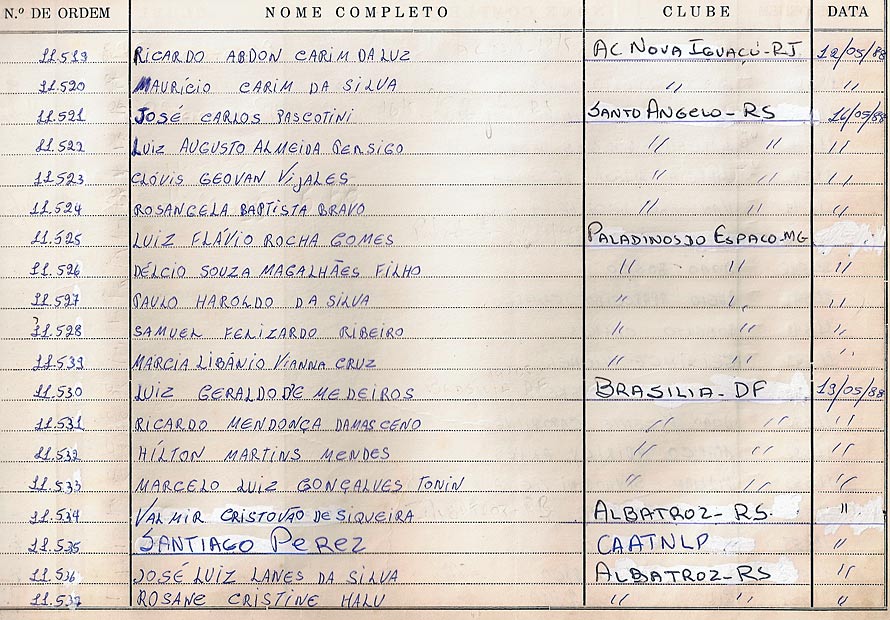 N.º DE ORDEM NOME COMPLETO CLUBE DATA
11.519 RICARDO ABDON CARIM DA LUZ AC NOVA IGUAÇÚ-RJ 12/05/88
11.520 MAURÍCIO CARIM DA SILVA " "
11.521 JOSÉ CARLOS PASCOTINI SANTO ANGELO-RS 16/05/88
11.522 LUIZ AUGUSTO ALMEIDA PERSIGO " " "
11.523 CLÓVIS GEOVAN VIJALES " " "
11.524 ROSANGELA BAPTISTA BRAVO " " "
11.525 LUIZ FLÁVIO ROCHA GOMES PALADINOS DO ESPAÇO-MG
11.526 DÉLCIO SOUZA MAGALHÃES FILHO " " "
11.527 PAULO HAROLDO DA SILVA " " "
11.528 SAMUEL FELIZARDO RIBEIRO " " "
11.539 MARCIA LIBÂNIO VIANNA CRUZ " " "
11.530 LUIZ GERALDO DE MEDEIROS BRASILIA-DF 13/05/88
11.531 RICARDO MENDONÇA DAMASCENO " " "
11.532 HÍLTON MARTINS MENDES " " "
11.533 MARCELO LUIZ GONÇALVES TONIN " " "
11.534 VALMIR CRISTOVÃO DE SIQUEIRA ALBATROZ-RS. "
11.535 SANTIAGO PEREZ CAATNLP "
11.536 JOSÉ LUIZ LANES DA SILVA ALBATROZ-RS "
11.537 ROSANE CRISTINE HALU " " "